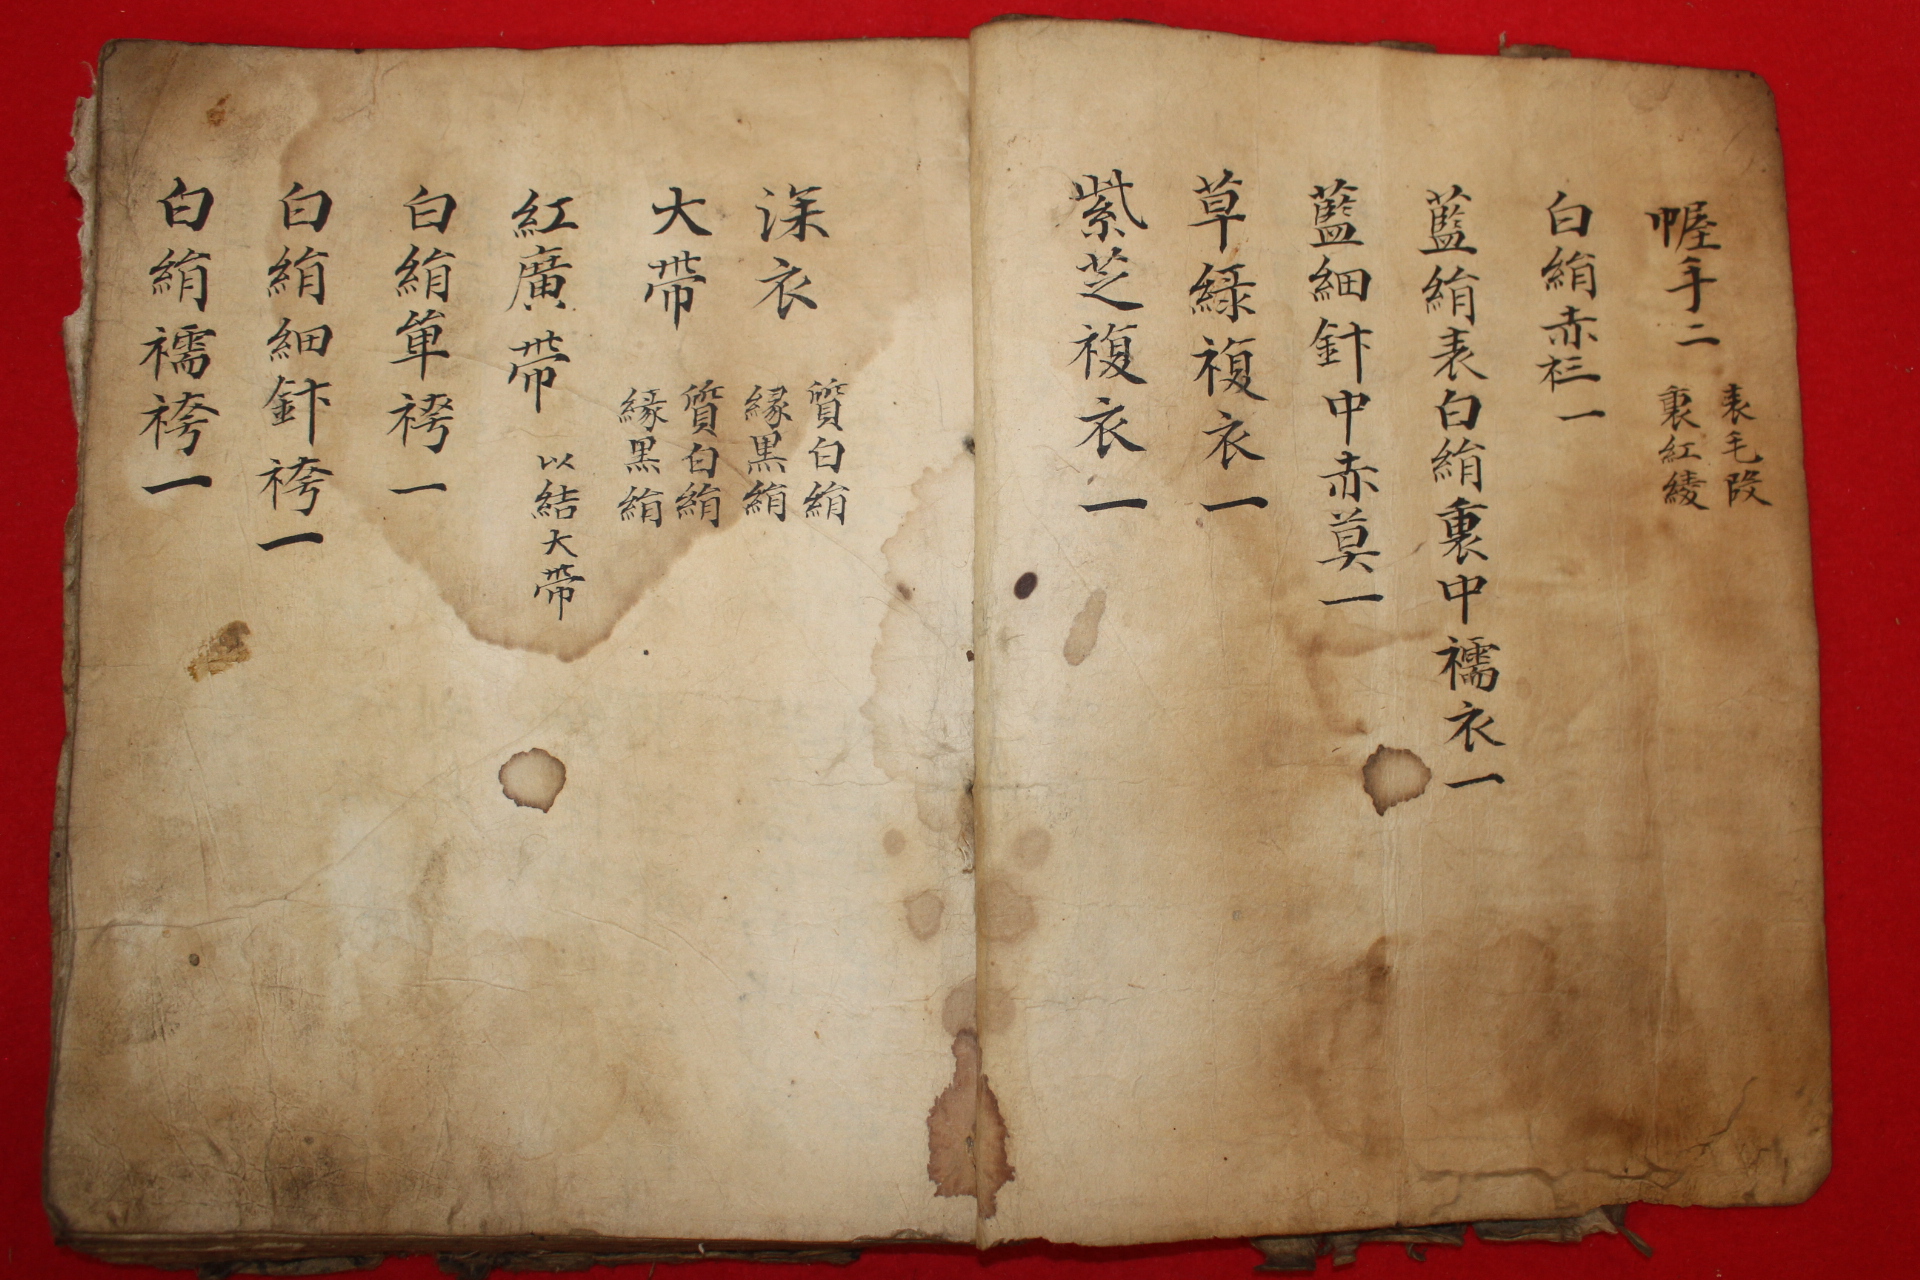 幄手二 表毛段 裏紅綾
白絹赤衫一
藍絹表白絹裏中襦衣一
藍細針中赤莫一
草綠複衣一
紫芝複衣一
深衣 質白絹 緣黑絹
大帶 質白絹 緣黑絹
紅廣帶 以結大帶
白絹單袴一
白絹細針袴一
白絹襦袴一